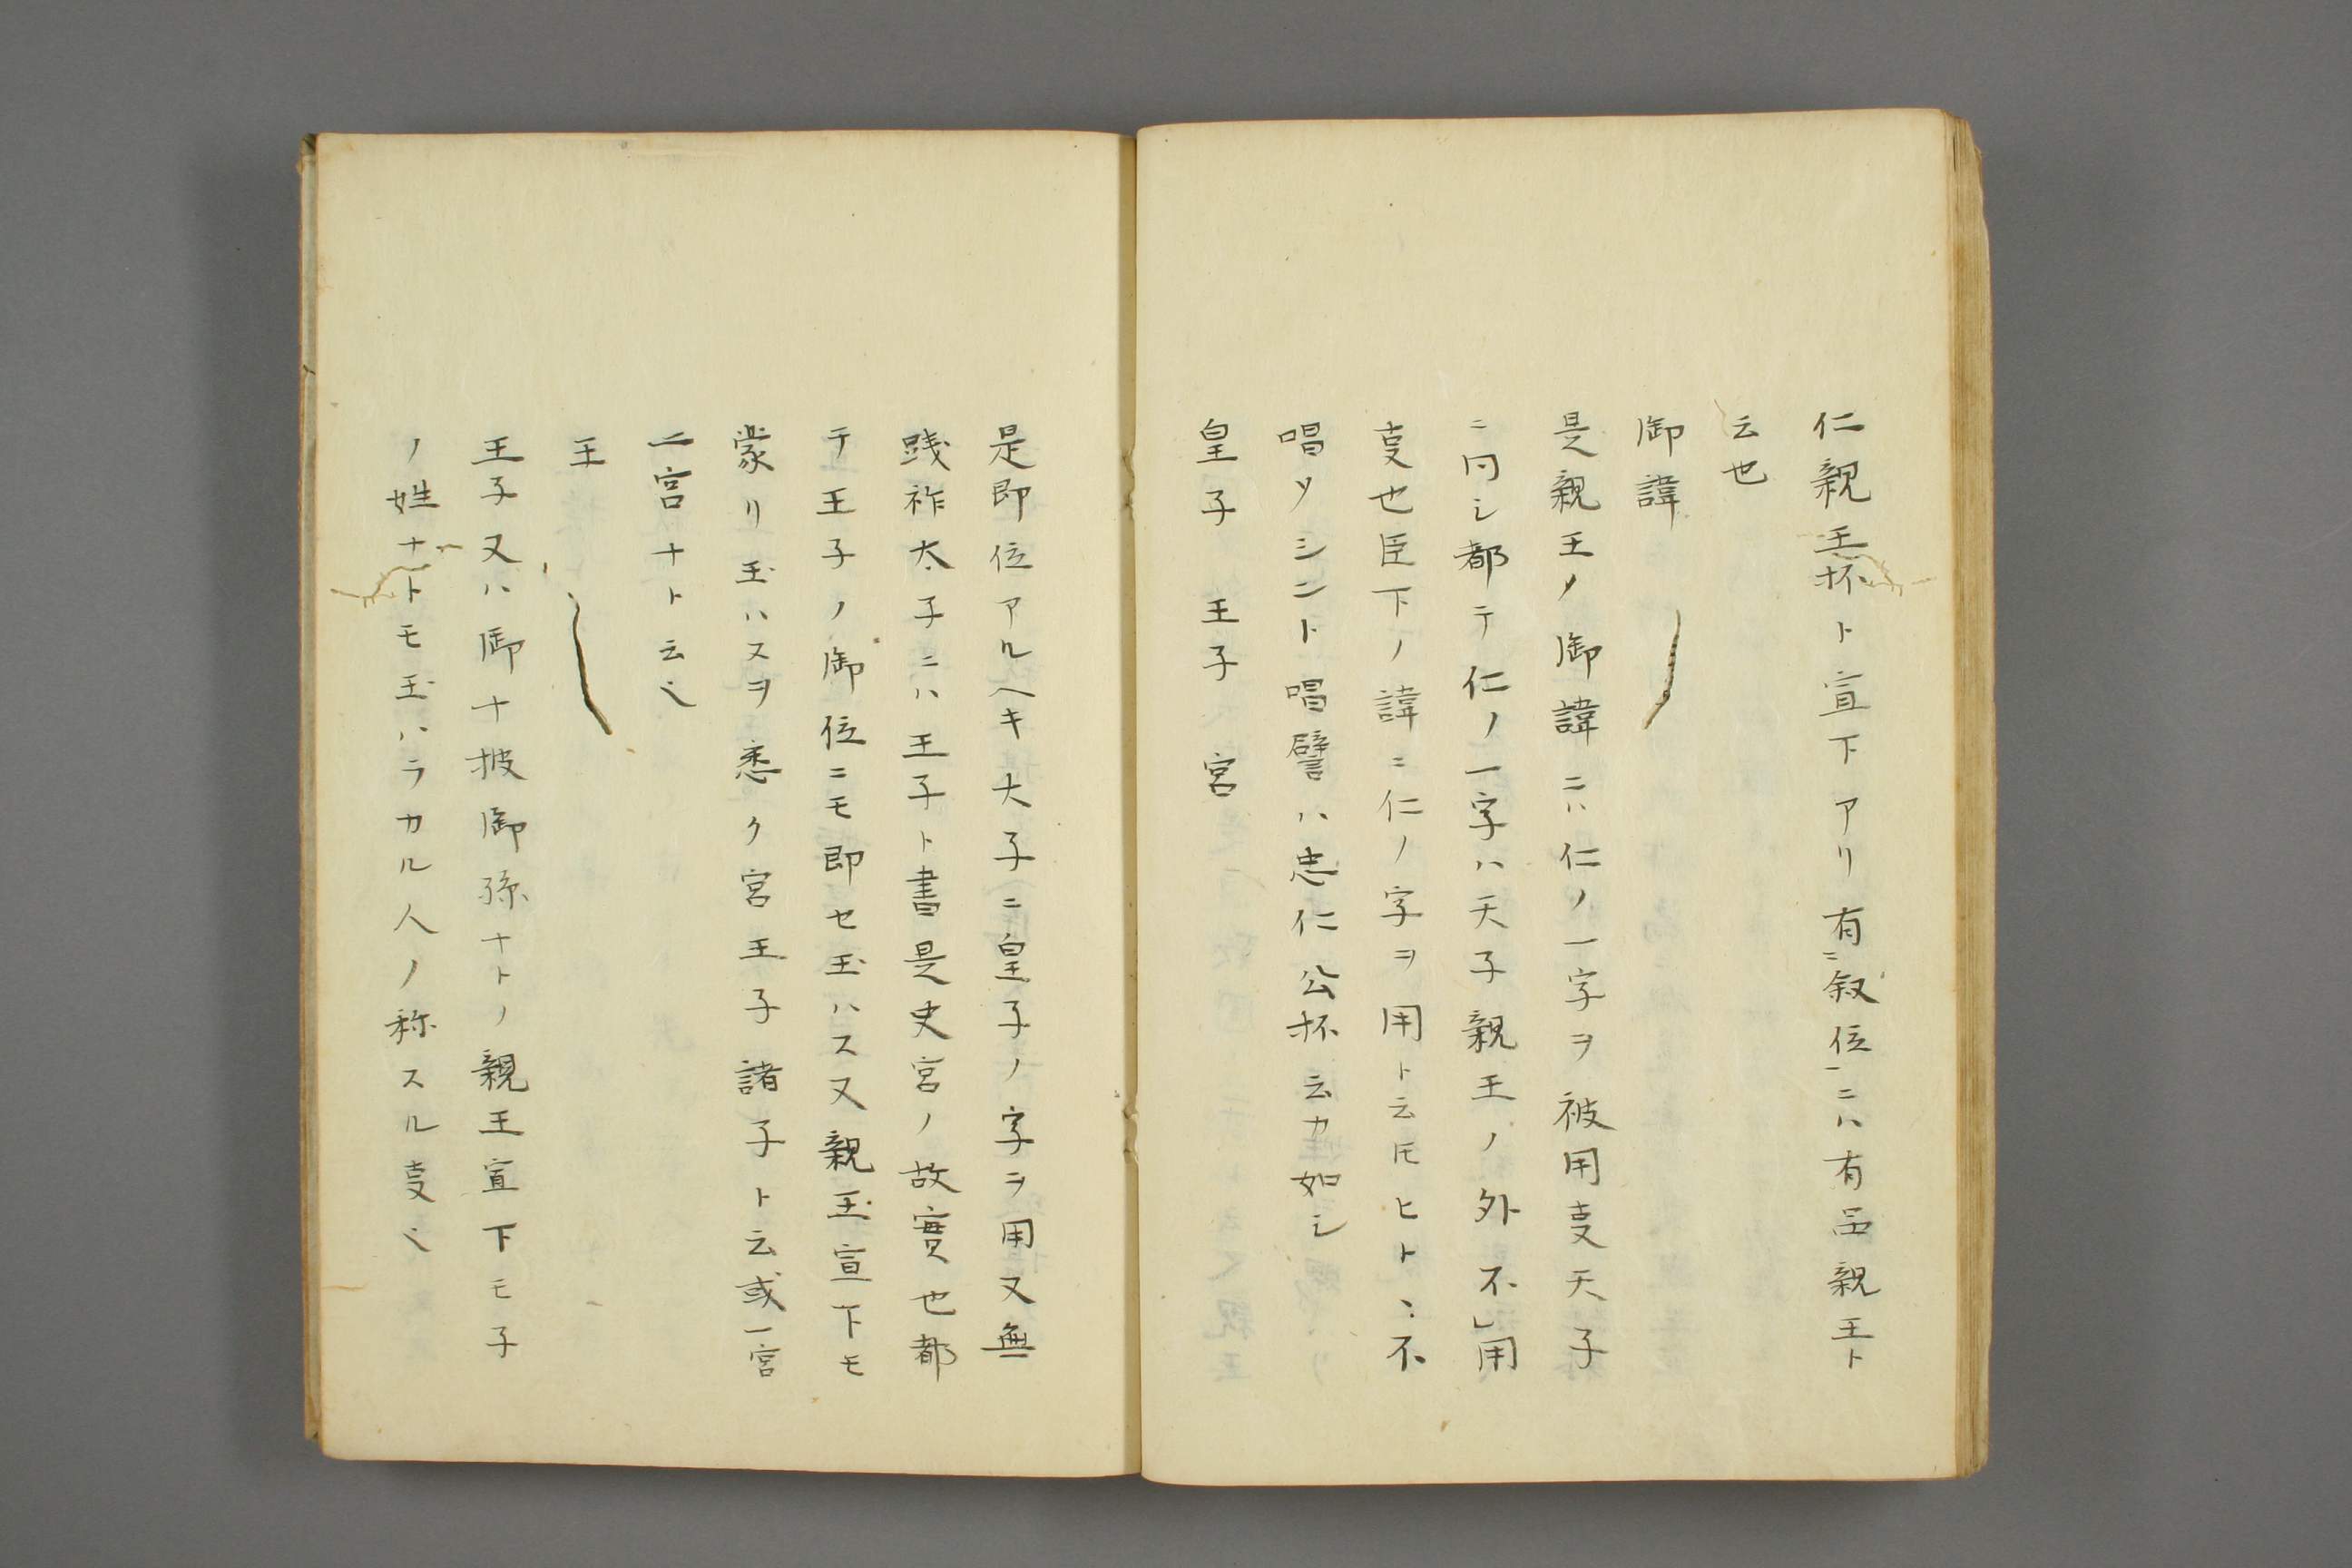 仁親王抔ト宣下アリ有ニ叙位一ニハ有品親王ト
云也
御諱
是親王ノ御諱ニハ仁ノ一字ヲ被用支天子
ニ同シ都テ仁ノ一字ハ天子親王ノ外不レ用
支也臣下ノ諱ニ仁ノ字ヲ用ト云ヒトヽ不
唱ソシント唱譬ハ忠仁公抔云カ如シ
皇子 王子 宮
是即位アルヘキ大子ニ皇子ノ字ヲ用又無
践祚太子ニハ王子ト書是史宮ノ故實也都
テ王子ノ御位ニモ即セ玉ハス又親王宣下モ
蒙リ玉ハスヲ悉ク宮王子諸子ト云或一宮
二宮ナトヽ云也
王
王子又ハ御ナ披御孫ナトノ親王宣下モ子
ノ姓ナトモ玉ハラカル人ノ称スル支也